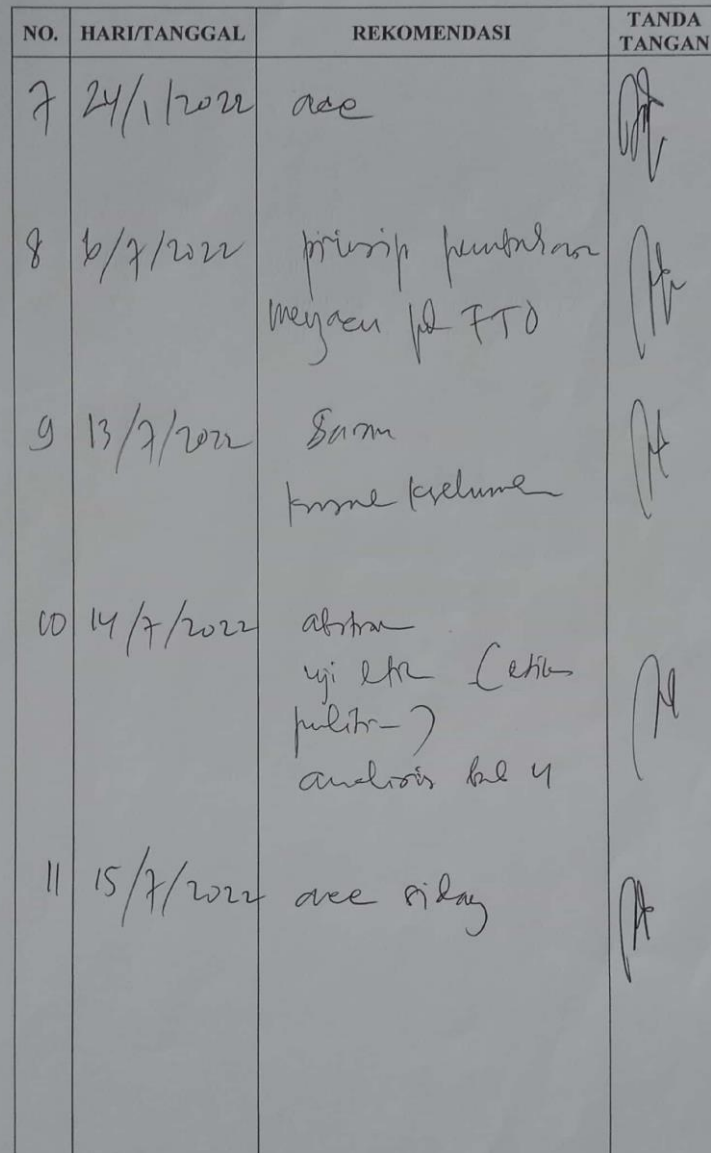 NO. HARI/TANGGAL REKOMENDASI TANDA TANGAN
7 24/1/2022 acc
8 6/7/2022 prinsip pembahasan
mengacu pd FTO
9 13/7/2022 Saran
10 14/7/2022 abstrak
uji etik (etik
analisis bab 4
11 15/7/2022 acc sidang